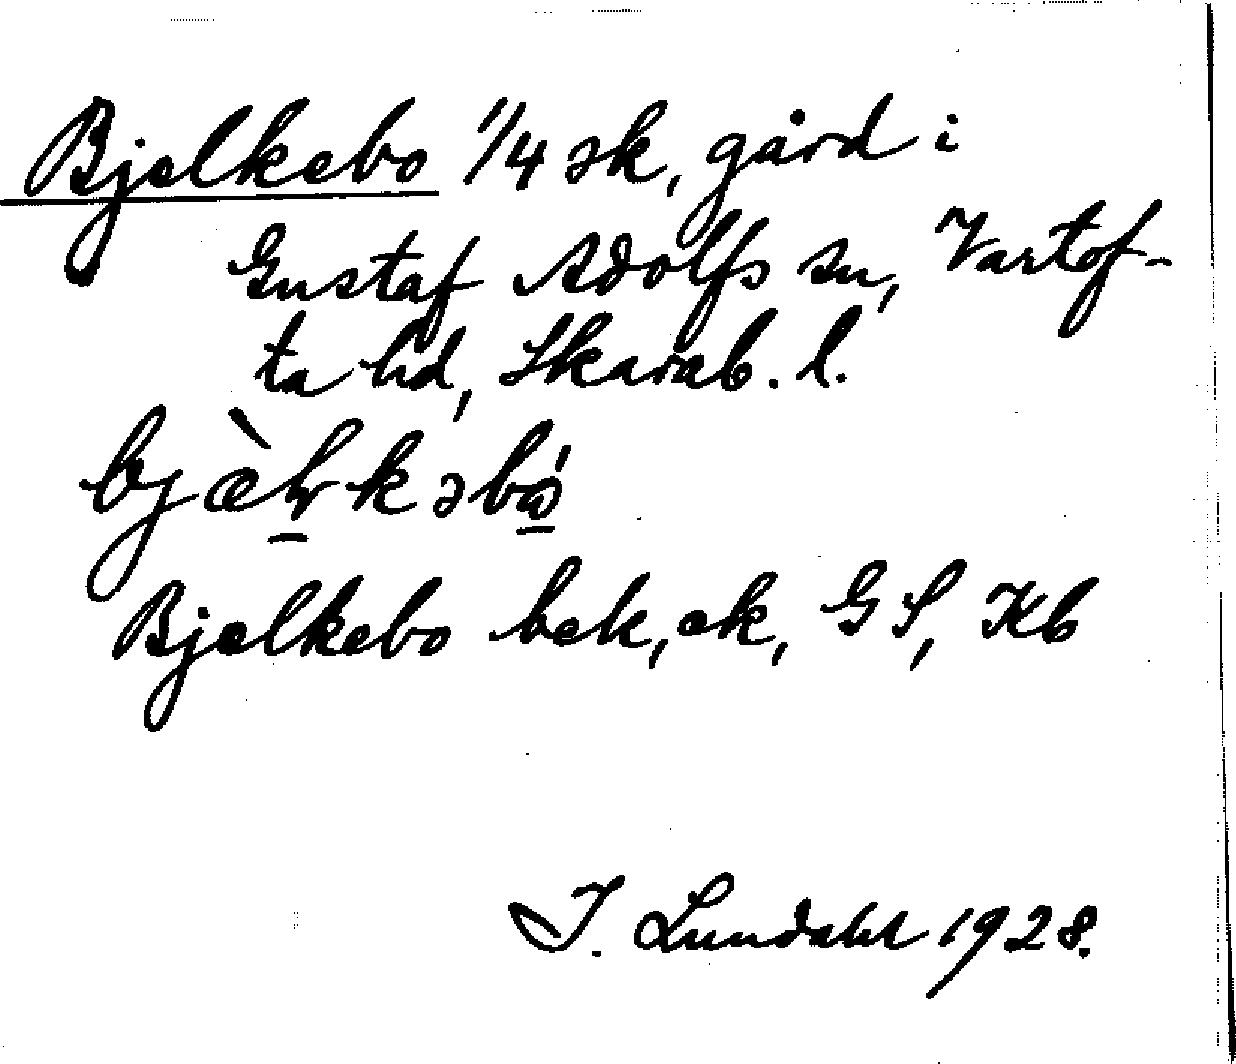 Bjelkebo 1/4 sk, gård i
Gustaf Adolfs sn, Vartof-
ta hd, Skarab. l.
Bjelkebo bek, ek, GS, Kb
I. Lundahl 1928.